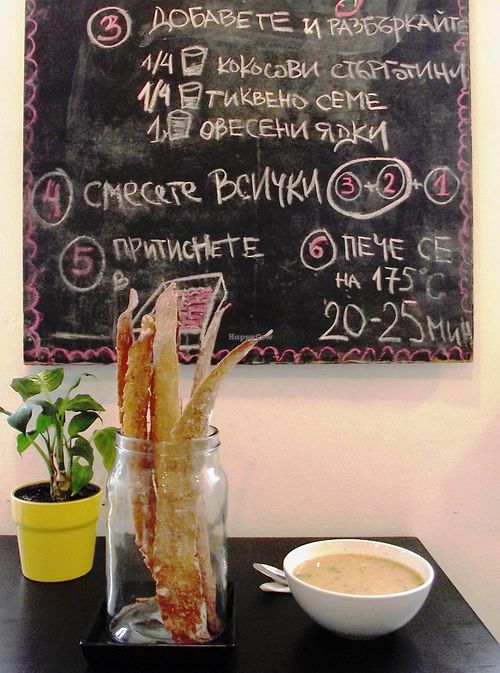 3 ДОБАВЕТЕ И РАЗБЪРКАЙТЕ
1/4 КОКОСОВИ СТЪРГОТИНИ
1/4 ТИКВЕНО СЕМЕ
1 ОВЕСЕНИ ЯДКИ
4 СМЕСЕТЕ ВСИЧКИ 3+2+1
5 ПРИТИСНЕТЕ
В
6 ПЕЧЕ СЕ
НА 175°C
20-25 МИН
HappyCow